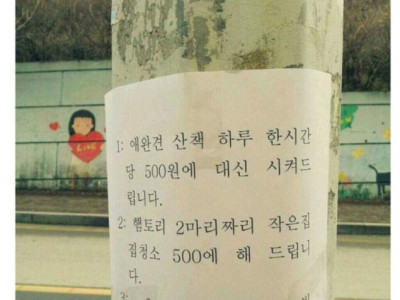 1: 애완견 산책 하루 한시간
당 500원에 대신 시켜드
립니다.
2: 햄토리 2마리짜리 작은집
집청소 500에 해 드립니
다.
LOVE